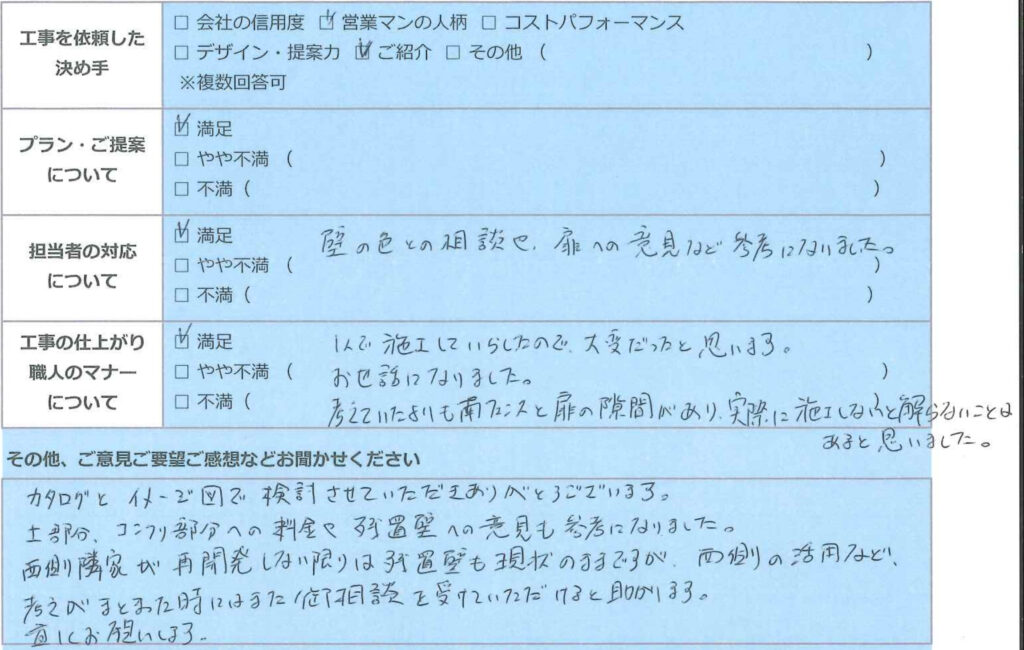 工事を依頼した
決め手
□ 会社の信用度 ☑ 営業マンの人柄 □ コストパフォーマンス
□ デザイン・提案力 ☑ ご紹介 □ その他（ ）
※複数回答可
プラン・ご提案
について
☑ 満足
□ やや不満（ ）
□ 不満（ ）
担当者の対応
について
☑ 満足
壁の色との相談や、扉への意見など参考になりました。
□ やや不満（ ）
□ 不満（ ）
工事の仕上がり
職人のマナー
について
☑ 満足
1人で施工していらしたので、大変だったと思います。
□ やや不満（ ）
お世話になりました。
□ 不満（
考えていたよりも南フェンスと扉の隙間があり、実際に施工しないと解らないことは
あると思いました。
その他、ご意見ご要望ご感想などお聞かせください
カタログとイメージ図で検討させていただきありがとうございます。
土部分、コンクリ部分への料金や残置壁への意見も参考になりました。
西側隣家が再開発しない限りは残置壁も現状のままですが、西側の活用など、
考えがまとまった時にはまた相談を受けていただけると助かります。
お願いします。